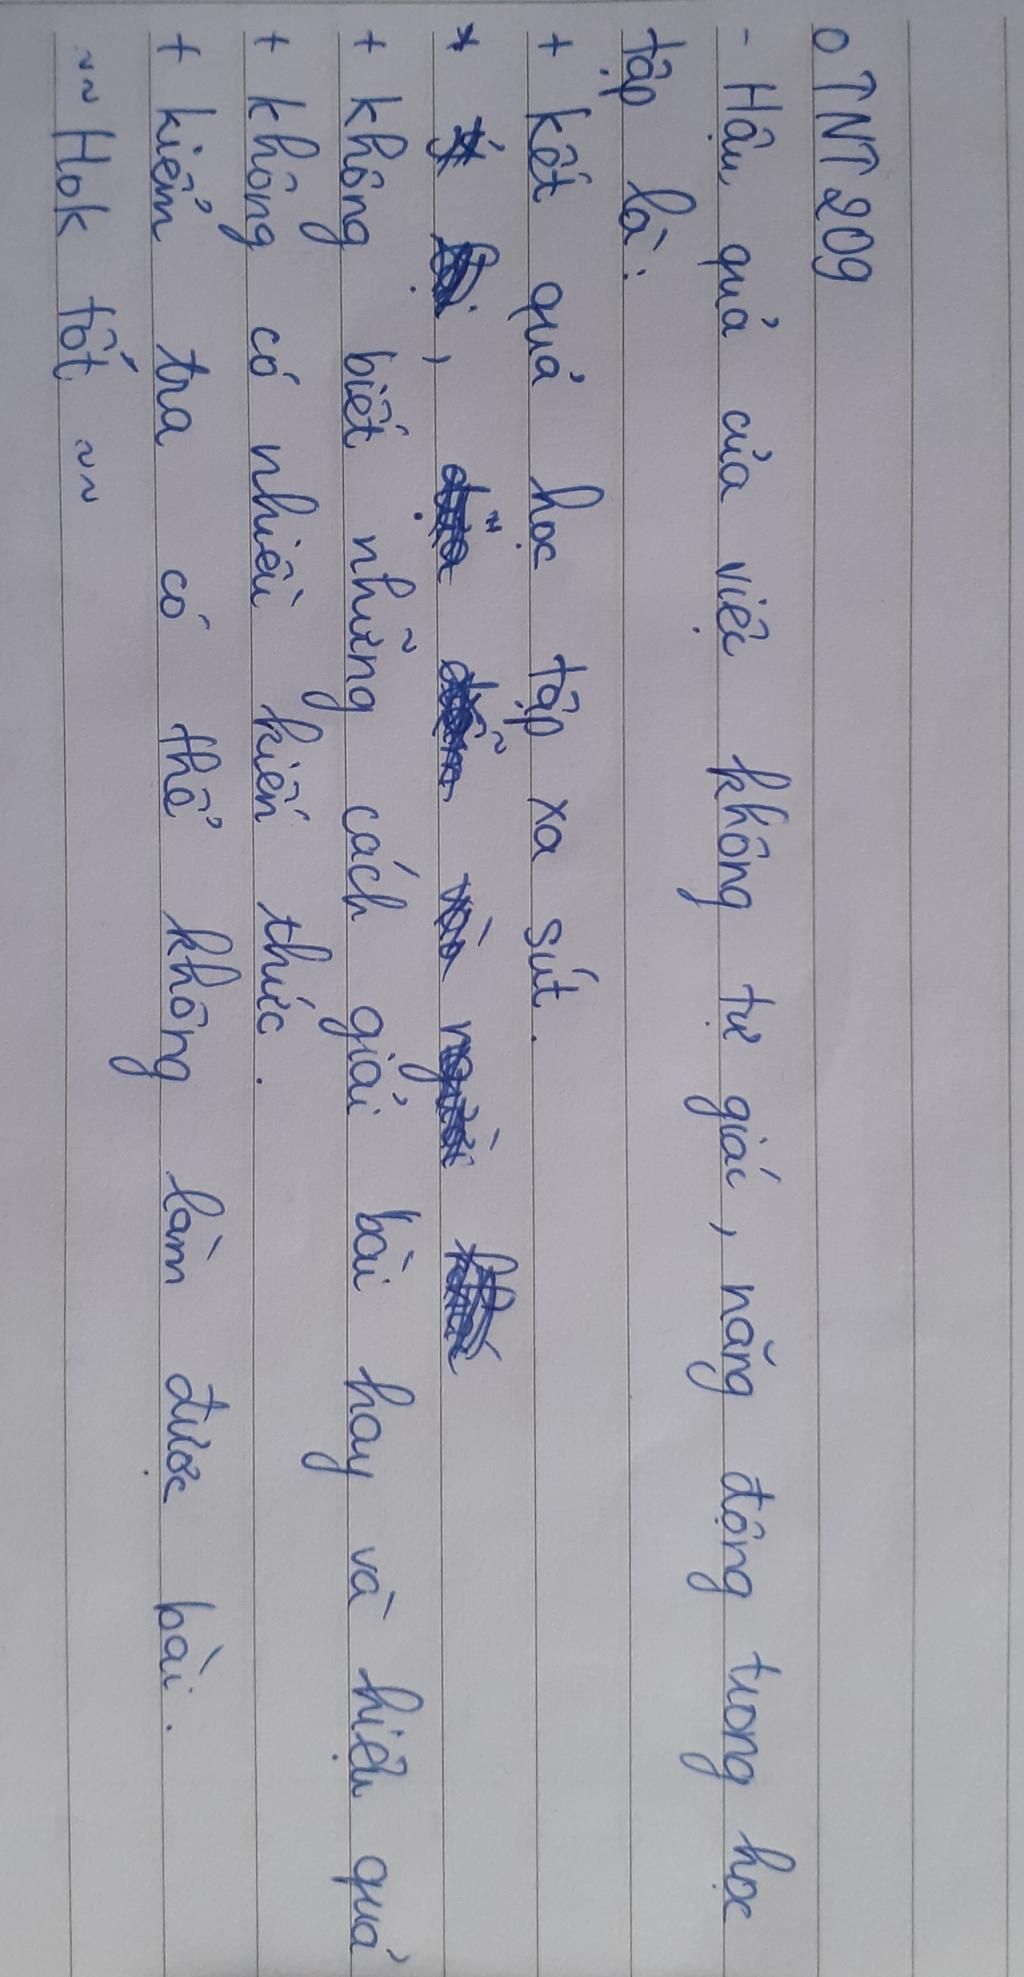 o TNT 209
- Hậu quả của việc không tự giác, năng động trong học
tập là:
+ kết quả học tập xa sút.
+ ỷ lại, dựa dẫm vào người khác
+ không biết những cách giải bài hay và hiệu quả
+ không có nhiều kiến thức.
+ kiểm tra có thể không làm được bài.
~~ Hok tốt ~~